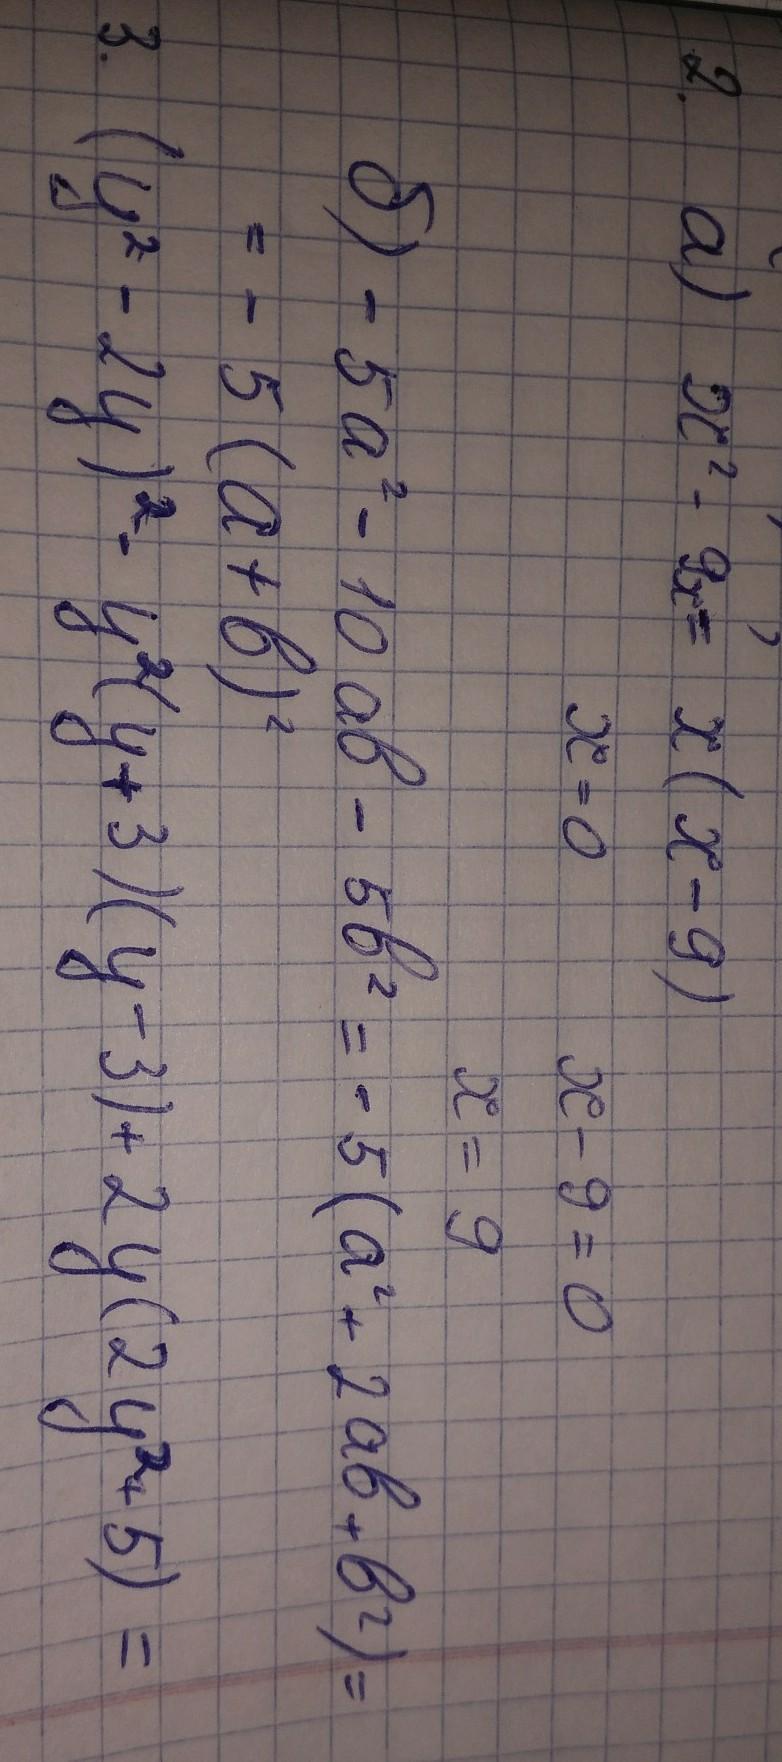 2. а) x² - 9x = x(x-9)
x=0 x-9=0
x=9
б) -5a² - 10ab - 5b² = -5(a² + 2ab + b²) =
= -5(a+b)²
3. (y² - 2y)² - y²(y+3)(y-3) + 2y(2y²+5) =